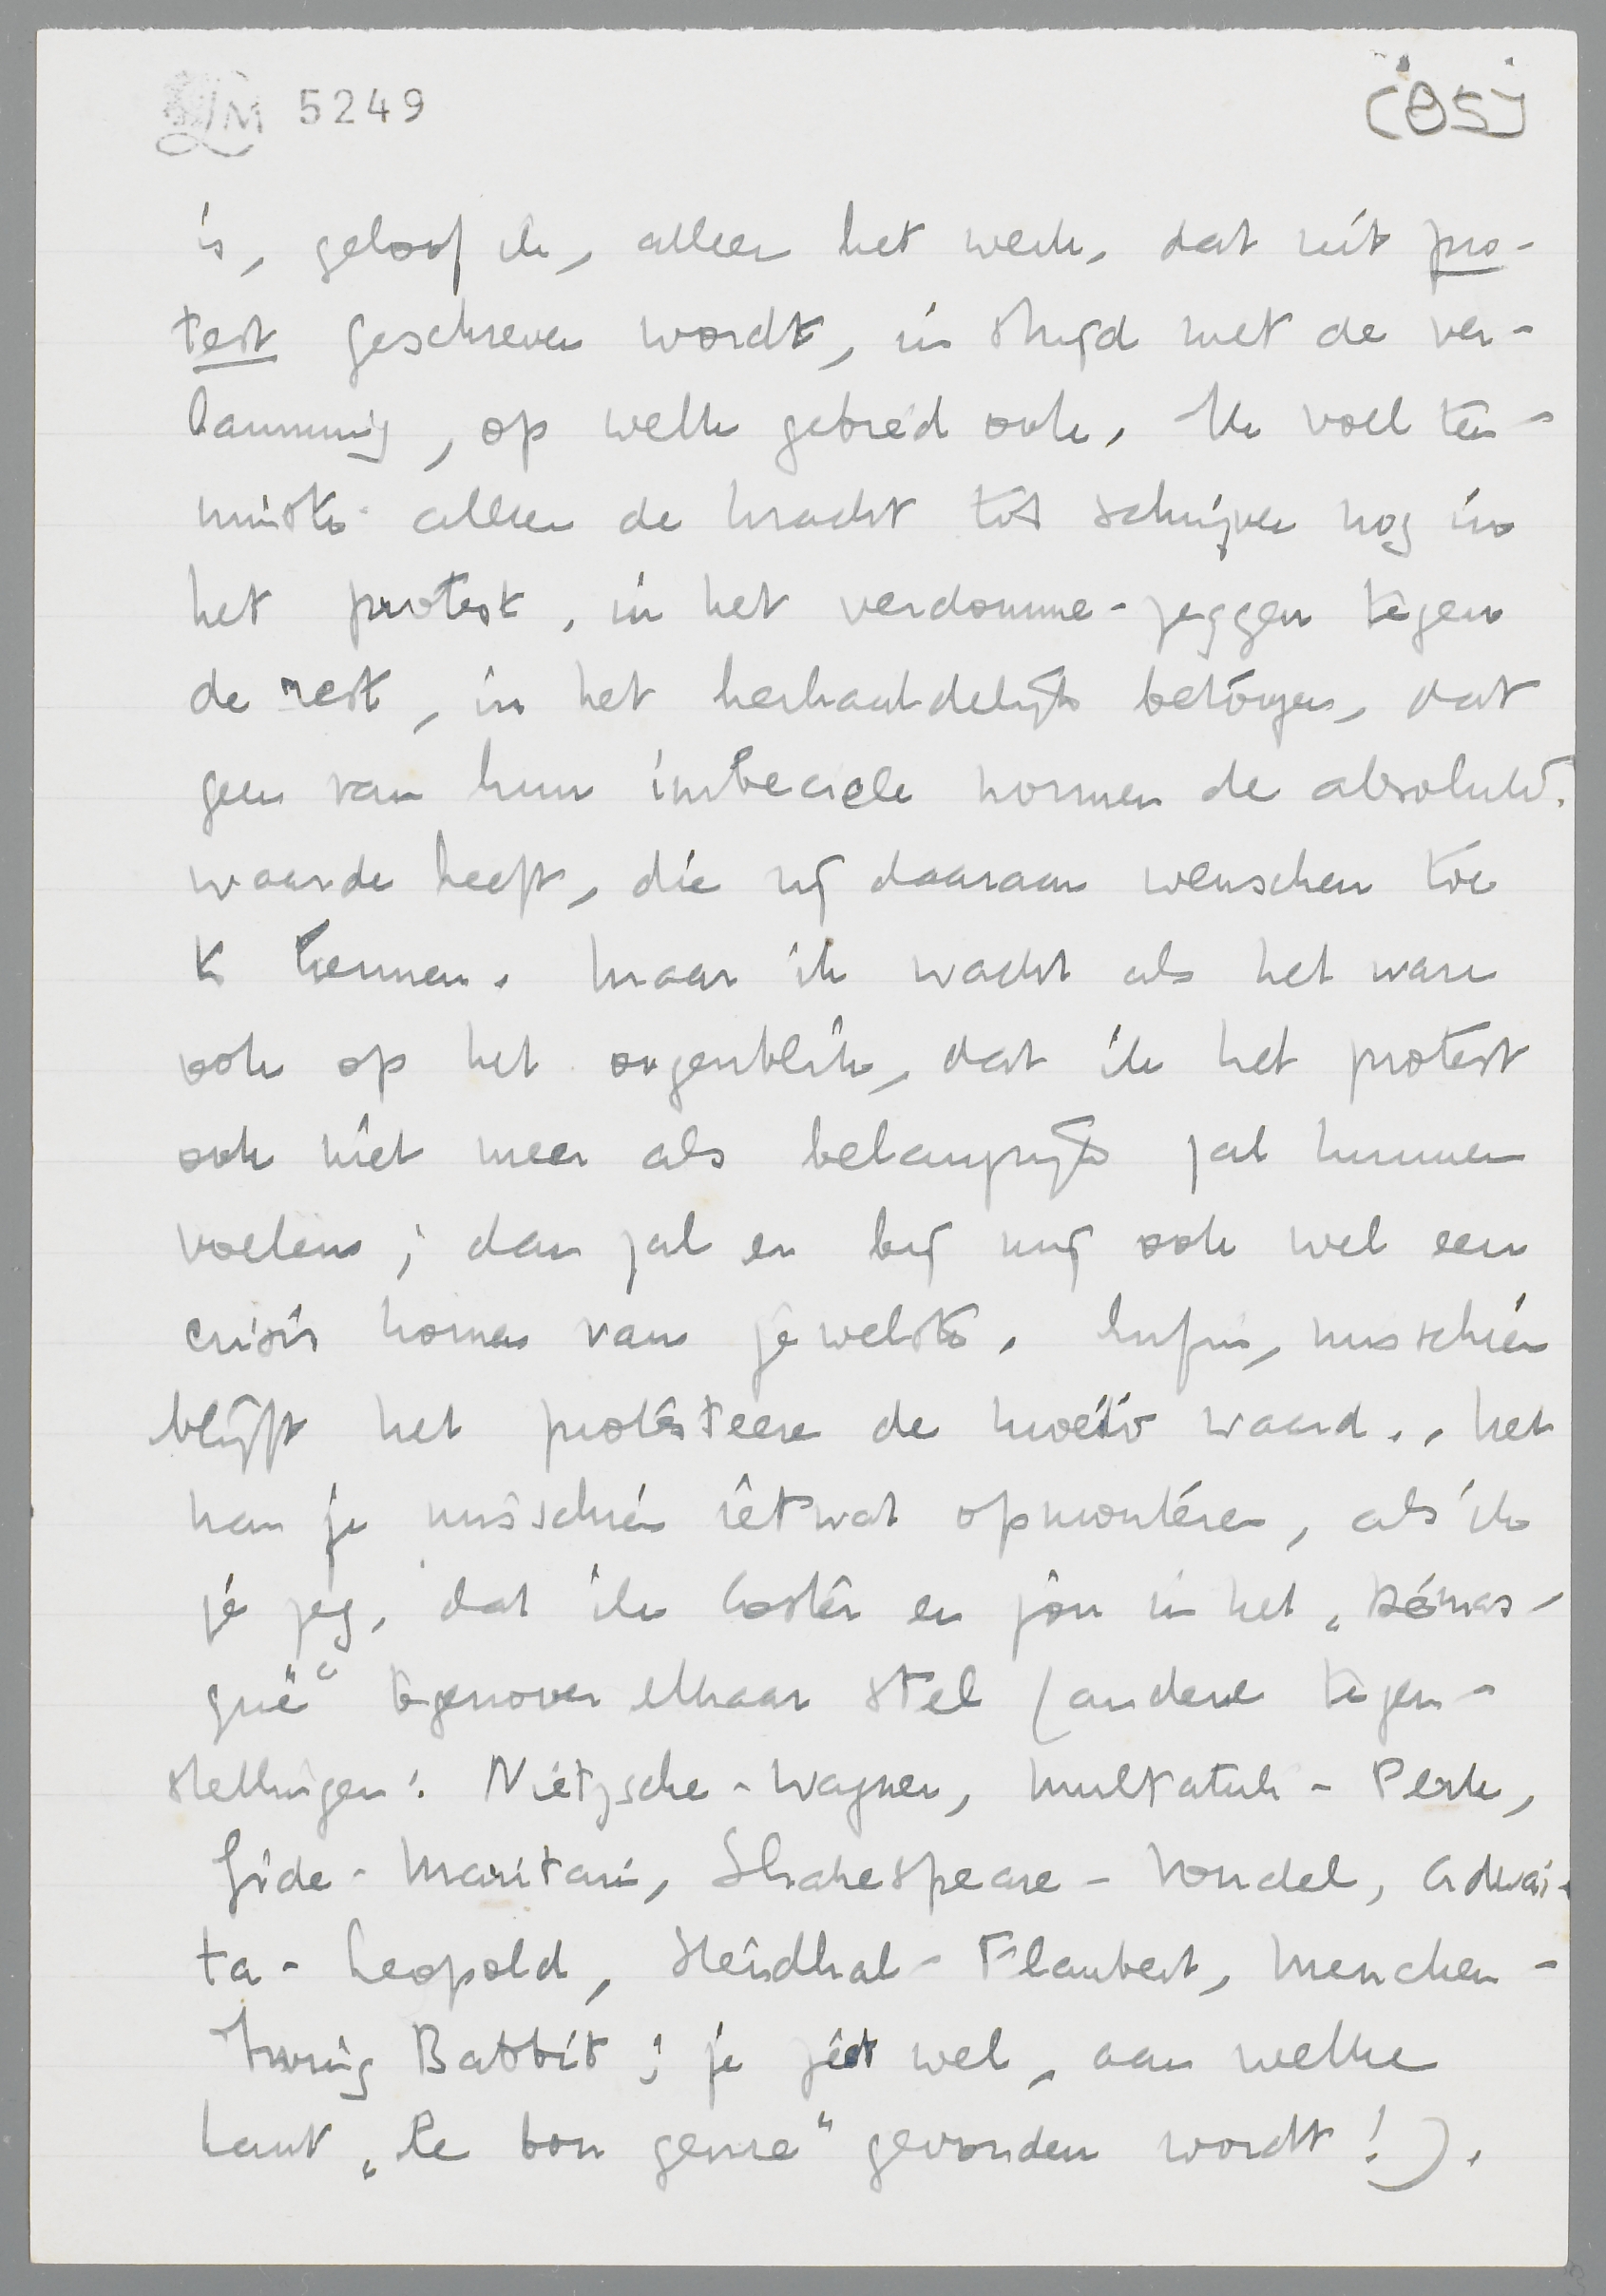 LM 5249
(85)
is, geloof ik, alleen het werk, dat uit pro-
test geschreven wordt, in strijd met de ver-
lamming, op welk gebied ook. Ik voel ten-
minste alleen de kracht tot schrijven nog in
het protest, in het verdomme-zeggen tegen
de rest, in het herhaaldelijk betoogen, dat
geen van hun imbeciele normen de absolute
waarde heeft, die zij daaraan wenschen toe
te kennen. Maar ik wacht als het ware
ook op het oogenblik, dat ik het protest
ook niet meer als belangrijk zal kunnen
voelen; dan zal er bij mij ook wel een
crisis komen van je welste. Enfin, misschien
blijft het protesteeren de moeite waard.. Het
kan je misschien ietwat opmonteren, als ik
je zeg, dat ik Coster en jou in het „Démas-
qué" tegenover elkaar stel (andere tegen-
stellingen: Nietzsche - Wagner, Multatuli - Perk,
Gide - Maritain, Shakespeare - Vondel, Adwaï-
ta - Leopold, Stendhal - Flaubert, Mencken -
Irving Babbit; je ziet wel, aan welke
kant „le bon genre" gevonden wordt!).